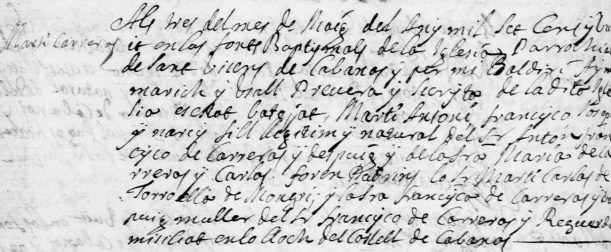 Als tres del mes de Maig del Any mil set Cents y vu
Martí Carreras
it en las fonts Baptismals de la Iglesia Parrochial
de Sant Vicens de Cabanas y per mi Baldiri Ay
marich y Vall Prevere y Secrista de la dita Igle
sia es estat batejat, Martí Antoni francisco Joseph
y narcis fill llegitim y natural del Sr Anton fran
cisco de Carreras y despuig y de la Sra Maria de Ca
rreras y Carlas. foren Padrins lo Sr Martí Carlas de
Torroella de Mongri y la Sra francisca de Carreras y des
puig muller del Sr francisco de Carreras y Requer do
miciliat en lo lloch del Castell de Cabanas